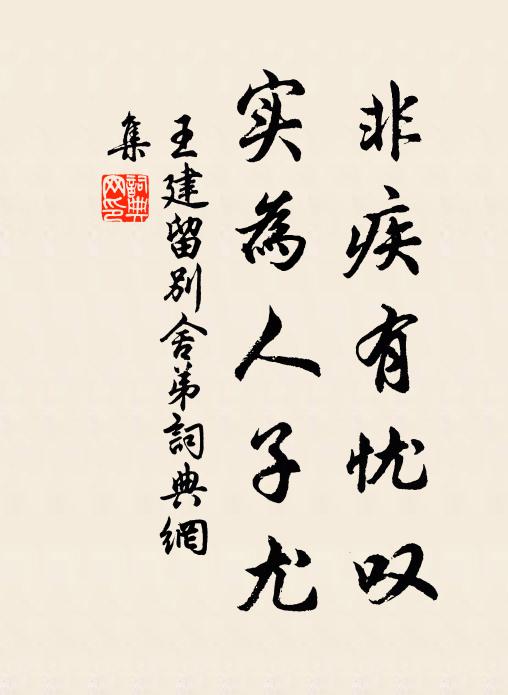 非疾有忧叹
实為人子尤
王建留别舍弟詞典網
集
詞典
网印